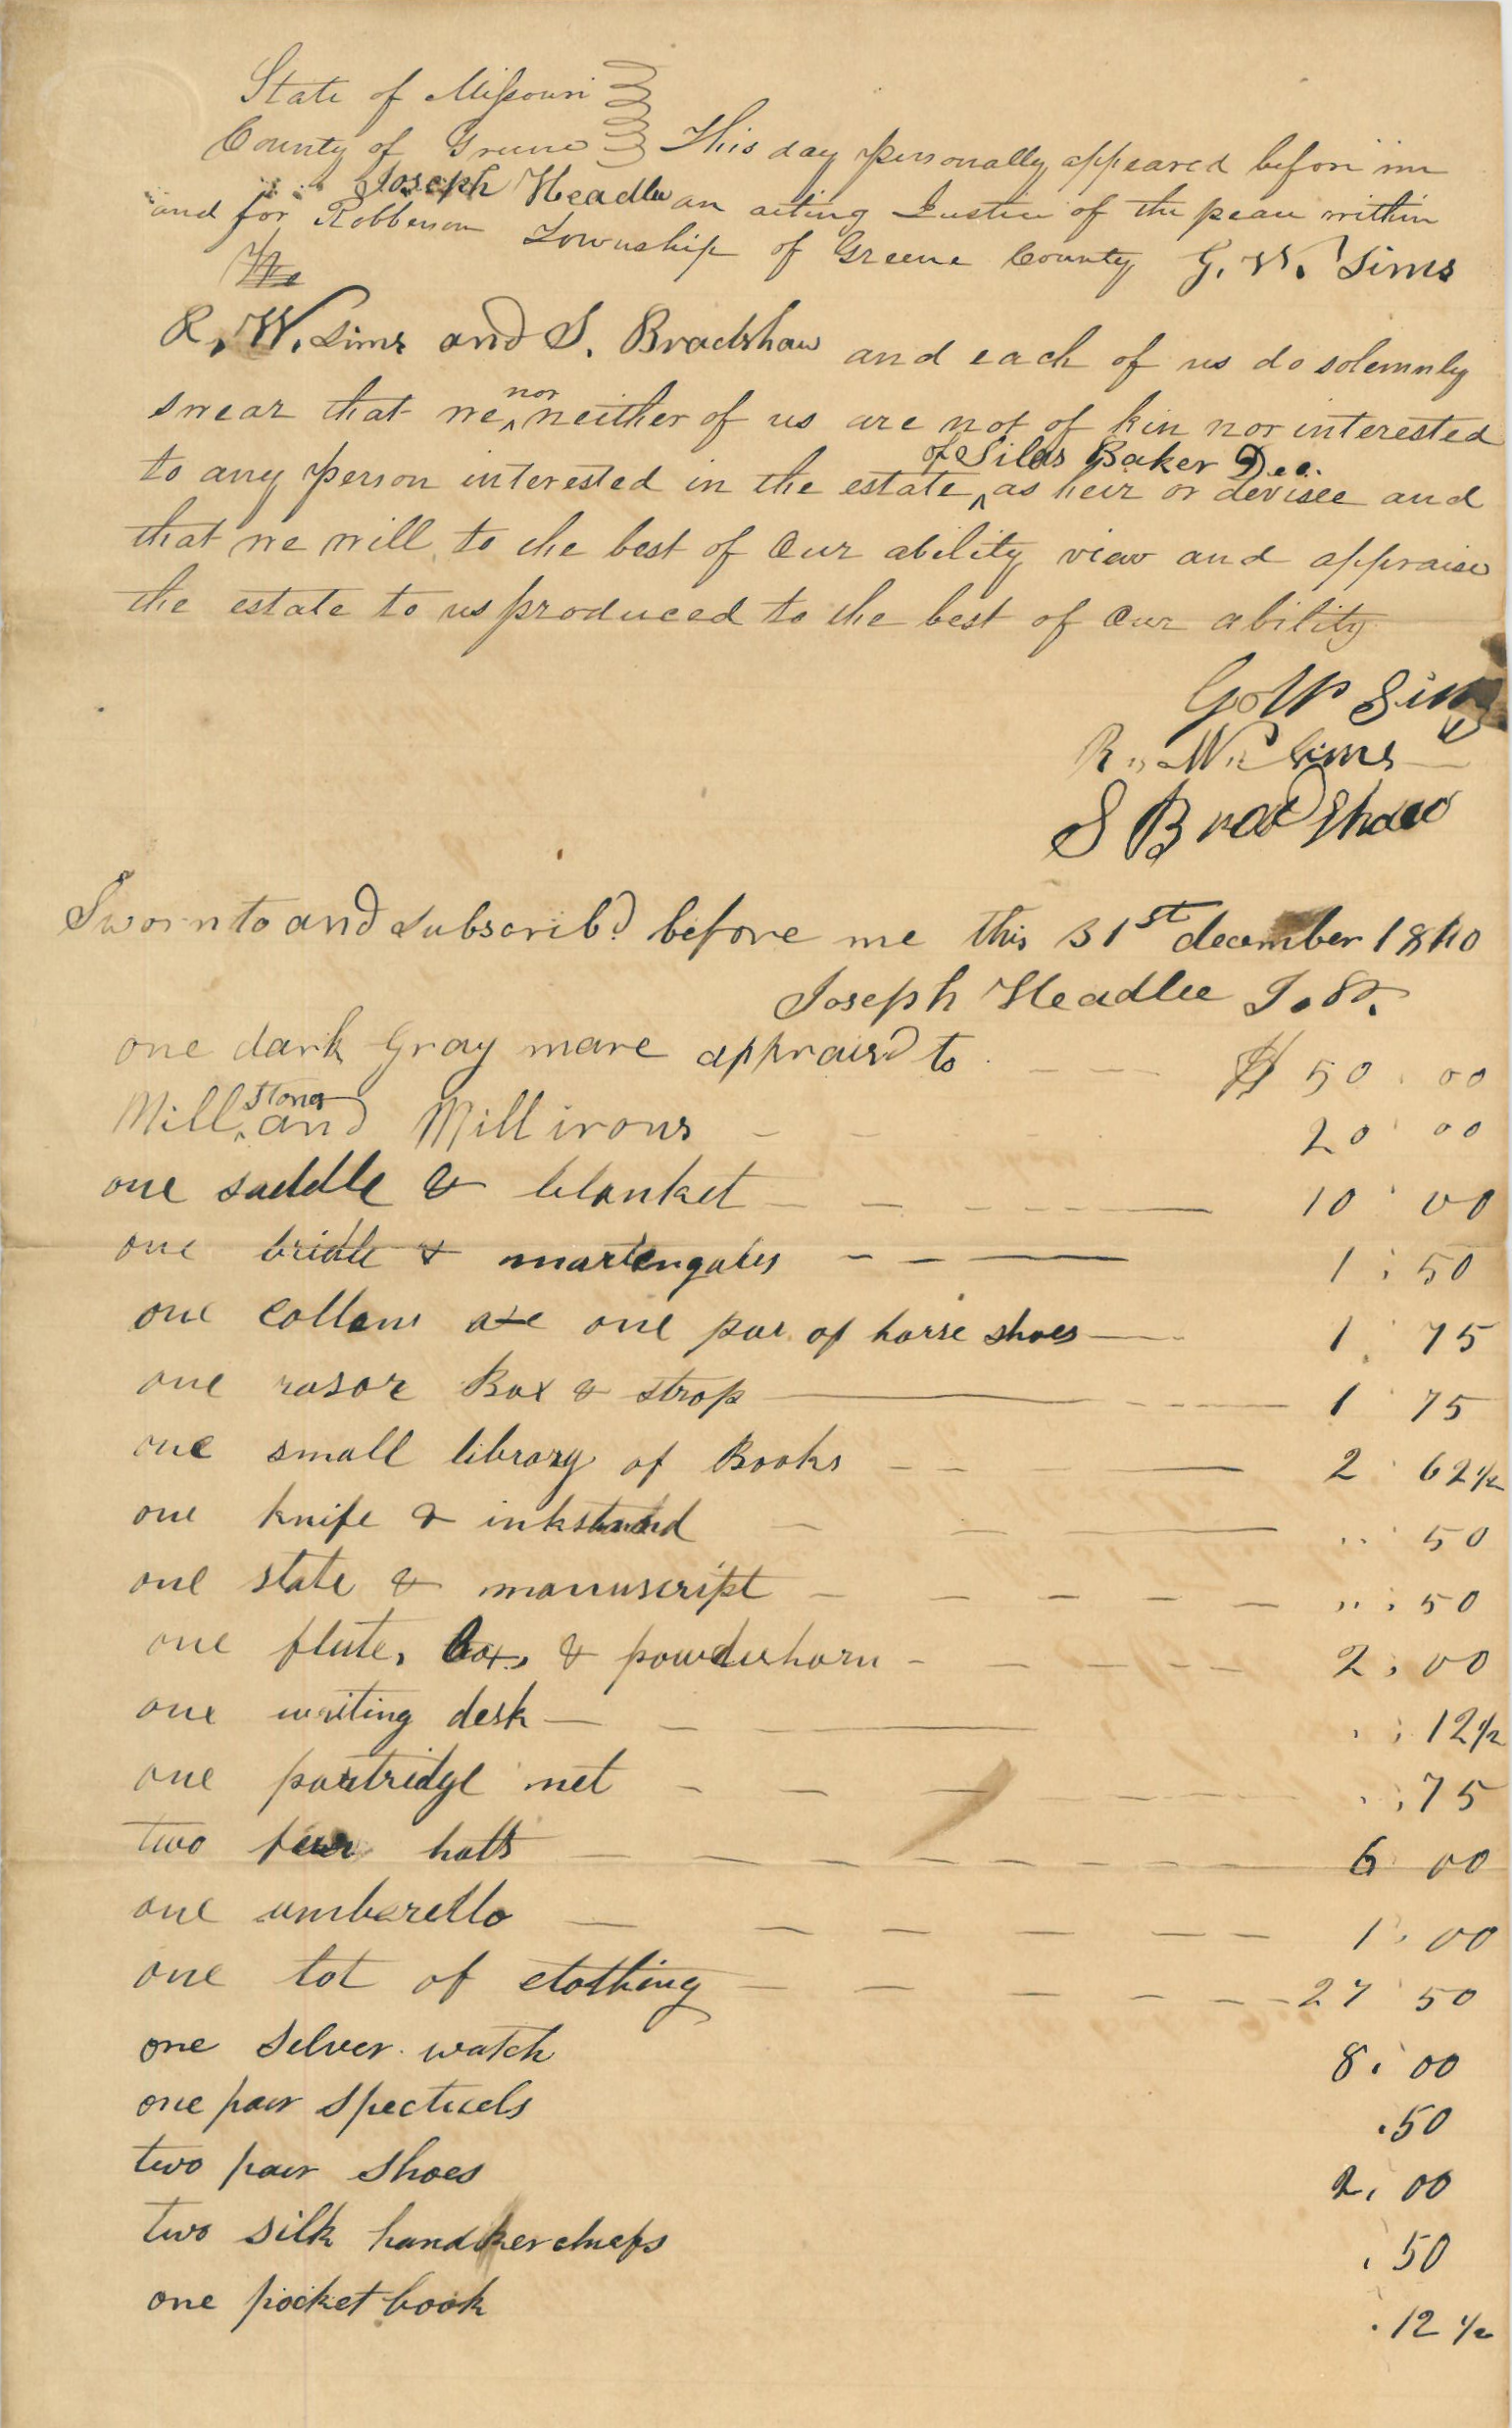 State of Missouri
County of Greene This day personally appeared before me
Joseph Headlee an acting Justice of the peace within
and for Robberson Township of Greene County G. W. Sims
We
R. W. Sims and S. Bradshaw and each of us do solemnly
swear that we nor neither of us are not of kin nor interested
of Silas Baker Dec.
to any person interested in the estate as heir or devisee and
that we will to the best of Our ability view and appraise
the estate to us produced to the best of Our ability
Sims
R. W. Sims
S Bradshaw
Sworn to and subscribd before me this 31st december 1840
Joseph Headlee J. P.
one dark Gray mare appraisd to $ 50.00
Mill stones and Mill irons 20 00
one saddle & blanket 10 00
one bridle & martengales 1:50
one Collens axe one par of horse shoes 1.75
one rasor Box & strop 1 75
one small library of Books 2 62½
one knife & inkstand 50
one slate & manuscript 50
one flute, box, & powderhorn 2,00
one writing desk 12½
one partridge net 75
two furr hatts 6 00
one umberello 1.00
one lot of clothing 27 50
one Silver watch 8.00
one pair Spectucls .50
two pair Shoes 2.00
two silk handkerchiefs .50
one pocket book .12½